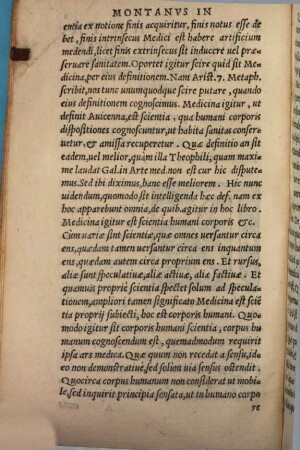 MONTANVS IN
entia ex notione finis acquiritur, finis notus esse de
bet, finis intrinsecus Medici est habere artificium
medendi, licet finis extrinsecus sit inducere uel præ
seruare sanitatem. Oportet igitur scire quid sit Me
dicina, per eius definitionem. Nam Arist. 7. Metaph.
scribit, nos tunc unumquodque scire putare, quando
eius definitionem cognoscimus. Medicina igitur, ut
definit Auicenna, est scientia, qua humani corporis
dispositiones cognoscuntur, ut habita sanitas conser=
uetur, & amissa recuperetur. Quæ definitio an sit
eadem, uel melior, quàm illa Theophili, quam maxi=
me laudat Gal. in Arte med. non est cur hic dispute=
mus. Sed ibi diximus, hanc esse meliorem. Hic nunc
uidendum, quomodo sit intelligenda hæc def. nam ex
hoc apparebunt omnia, de quib. agitur in hoc libro.
Medicina igitur est scientia humani corporis &c.
Cum uariæ sint scientiæ, quæ omnes uersantur circa
ens, quædam tamen uersantur circa ens inquantum
ens, quædam autem circa proprium ens. Et rursus,
aliæ sunt speculatiuæ, aliæ actiuæ, aliæ factiuæ. Et
quamuis propriè scientia spectet solum ad specula=
tionem, ampliori tamen significato Medicina est sciē
tia proprij subiecti, hoc est corporis humani. Quo=
modo igitur sit corporis humani scientia, corpus hu
manum cognoscendum est, quemadmodum requirit
ipsa ars medica. Quæ quum non recedat a sensu, ide=
o non demonstratiuè, sed solùm uia sensus ostendit.
Quocirca corpus humanum non considerat ut mobi=
le, sed inquirit principia sensata, ut in humano corpo
re